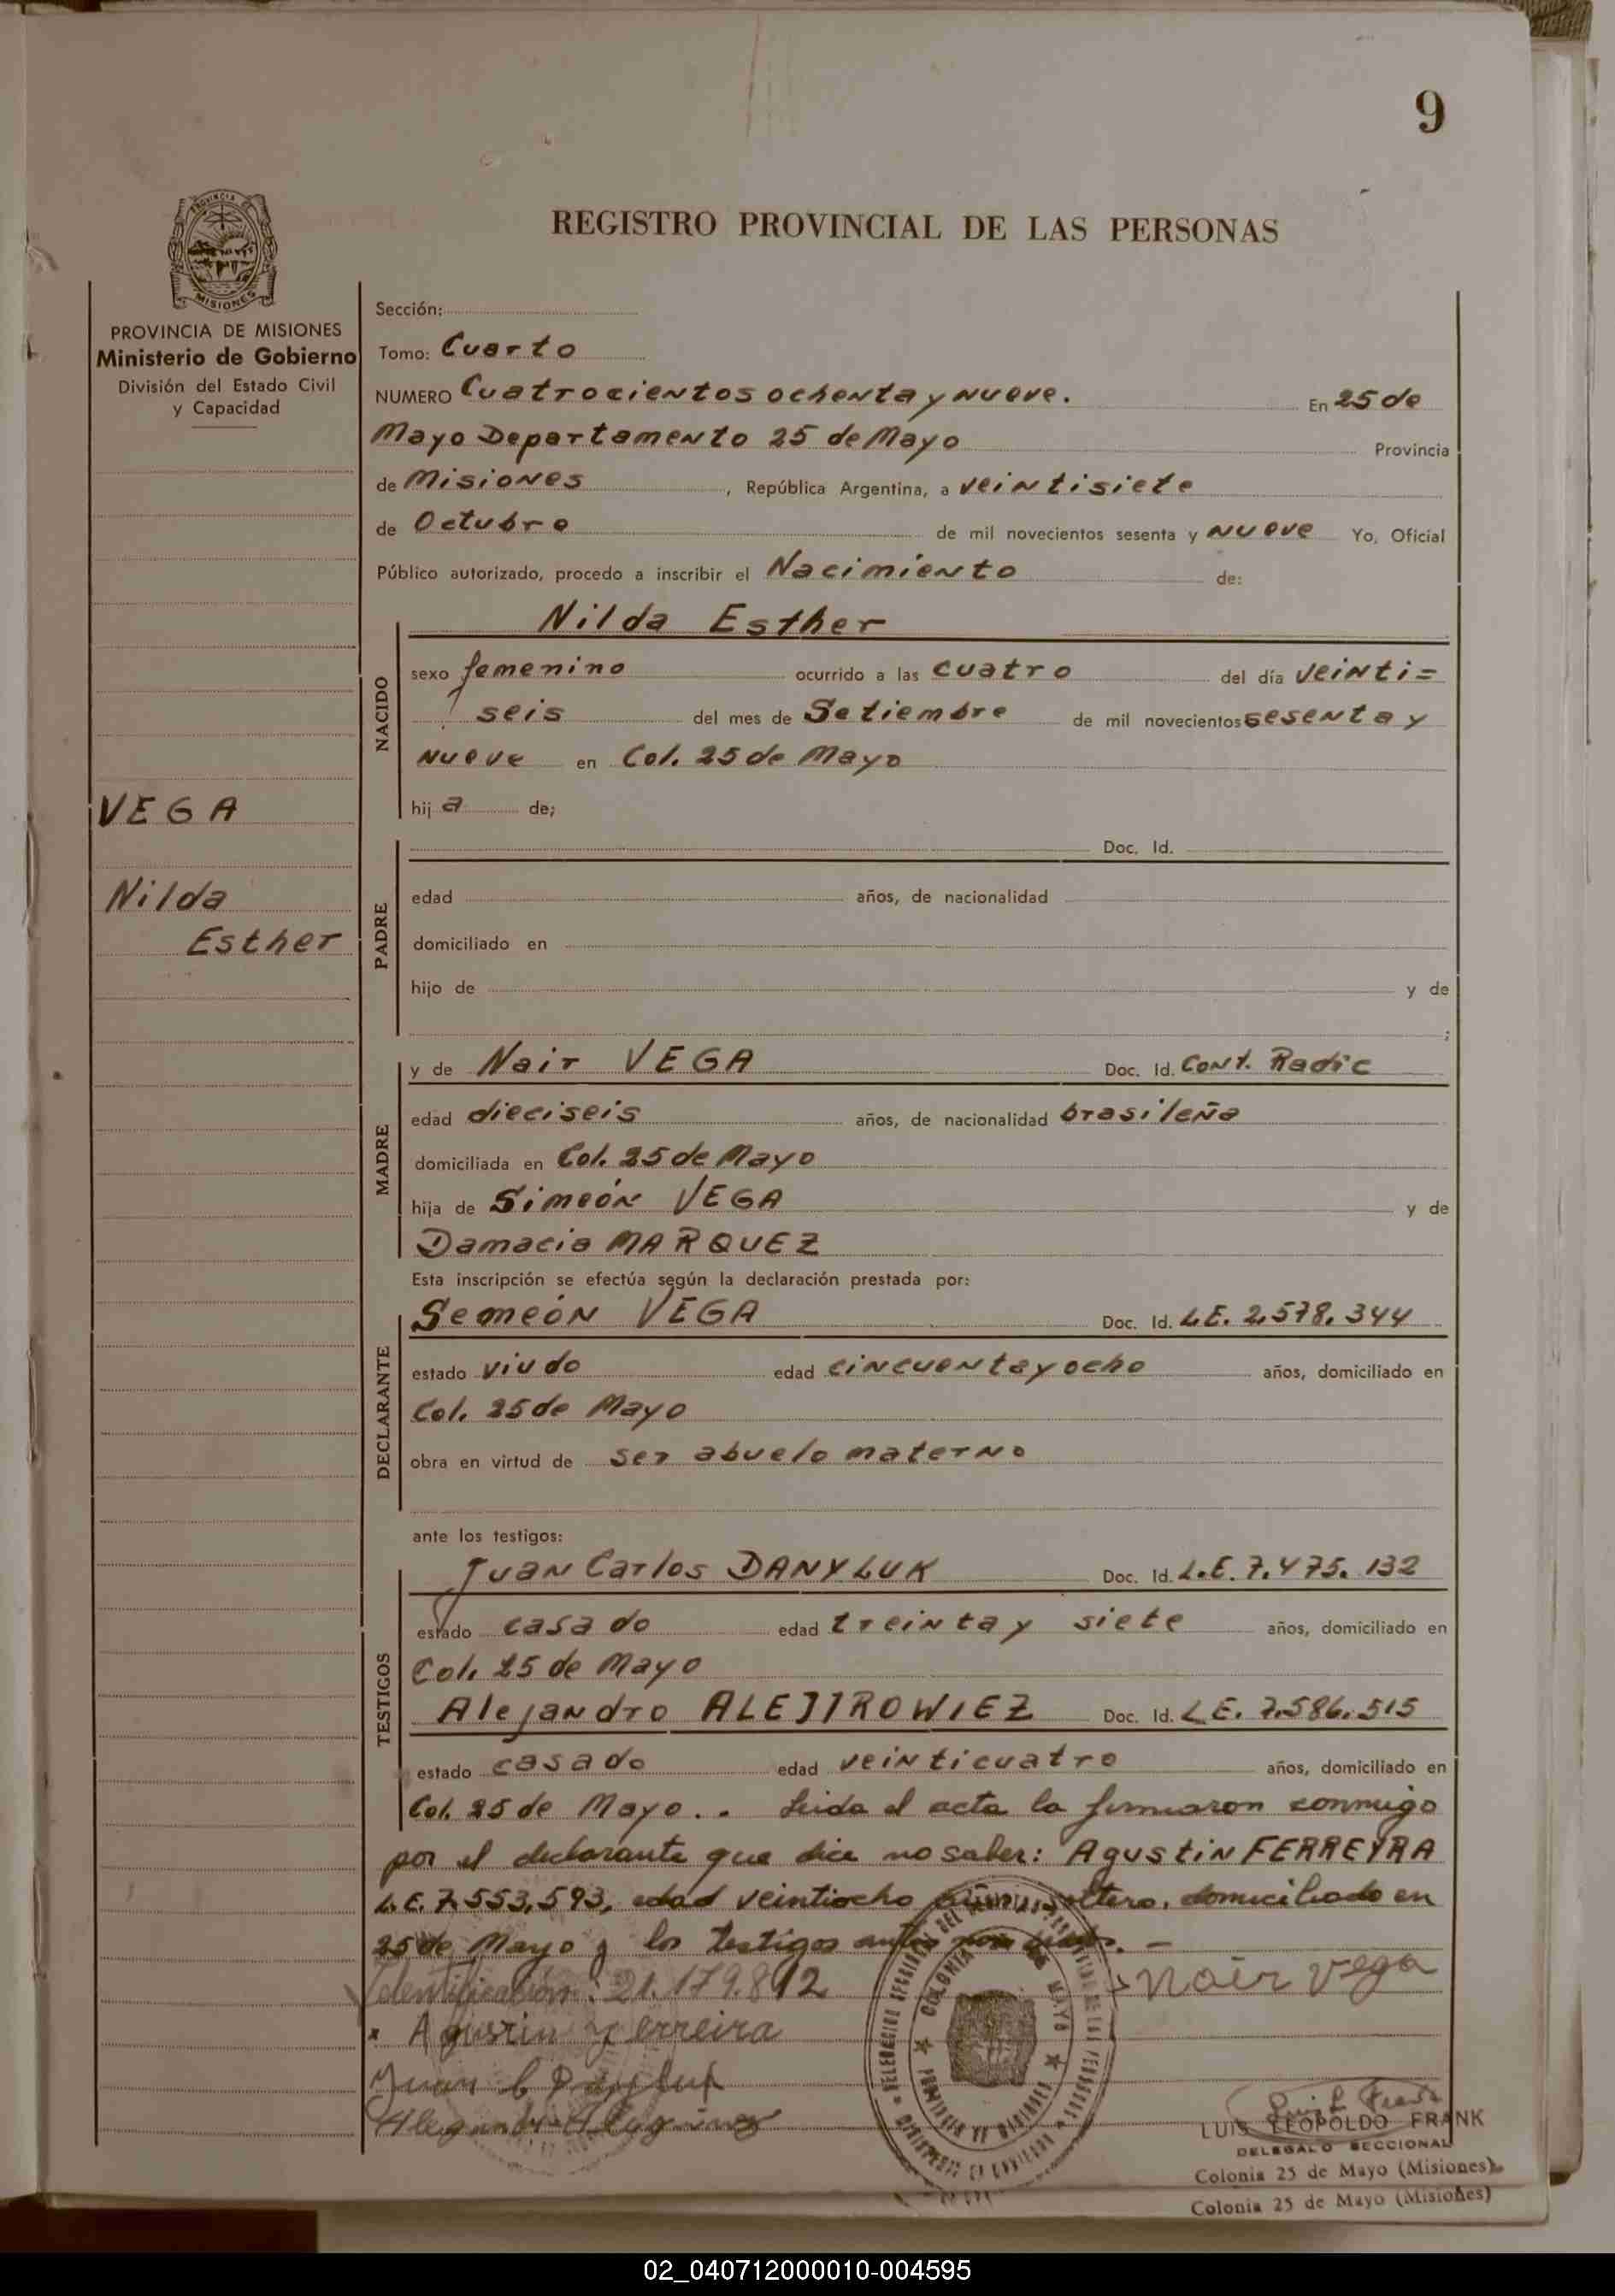 9
REGISTRO PROVINCIAL DE LAS PERSONAS
PROVINCIA DE
MISIONES
PROVINCIA DE MISIONES
Ministerio de Gobierno
División del Estado Civil
y Capacidad
VEGA
Nilda
Esther
Sección:
Tomo: Cuarto
NUMERO Cuatrocientos ochenta y nueve. En 25 de
Mayo Departamento 25 de Mayo Provincia
de Misiones , República Argentina, a veintisiete
de Octubre de mil novecientos sesenta y nueve Yo, Oficial
Público autorizado, procedo a inscribir el Nacimiento de:
NACIDO
Nilda Esther
sexo femenino ocurrido a las cuatro del día veinti=
seis del mes de Setiembre de mil novecientos sesenta y
nueve en Col. 25 de Mayo
hij a de;
PADRE
Doc. Id.
edad años, de nacionalidad
domiciliado en
hijo de y de
;
MADRE
y de Nair VEGA Doc. Id. Cont. Radic
edad dieciseis años, de nacionalidad brasileña
domiciliada en Col. 25 de Mayo
hija de Simeón VEGA y de
Damacia MARQUEZ
Esta inscripción se efectúa según la declaración prestada por:
DECLARANTE
Semeón VEGA Doc. Id. L.E. 2.578.344
estado viudo edad cincuenta y ocho años, domiciliado en
Col. 25 de Mayo
obra en virtud de ser abuelo materno
ante los testigos:
TESTIGOS
Juan Carlos DANYLUK Doc. Id. L.E. 7.475.132
estado casado edad treinta y siete años, domiciliado en
Col. 25 de Mayo
Alejandro Doc. Id. L.E. 7.586.515
estado casado edad veinticuatro años, domiciliado en
Col. 25 de Mayo.. Leida el acta la firmaron conmigo
por el declarante que dice no saber: Agustin FERREYRA
L.E. 7.553.593, edad veintiocho años soltero, domiciliado en
25 de Mayo y los testigos antes .-
Identificación: 21.179.812 Nair Vega
x Agustin Ferreira
Juan C Danyluk
COLONIA 25 DE MAYO
PROVINCIA DE MISIONES
LUIS LEOPOLDO FRANK
DELEGADO SECCIONAL
Colonia 25 de Mayo (Misiones)
Colonia 25 de Mayo (Misiones)
02_040712000010-004595